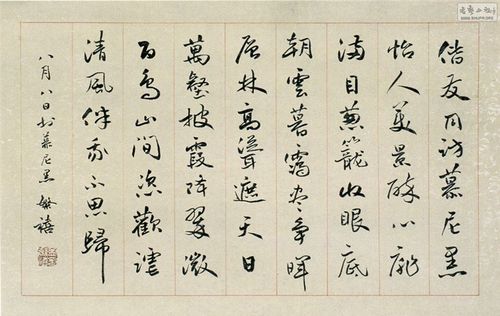 偕友同訪慕尼黑
怡人美景醉心扉
滿目蔥籠收眼底
朝雲暮靄盡爭暉
层林高聳遮天日
萬壑披霞降翠微
百鳥山間恣歡謔
清風伴我不思歸
八月八日於慕尼黑